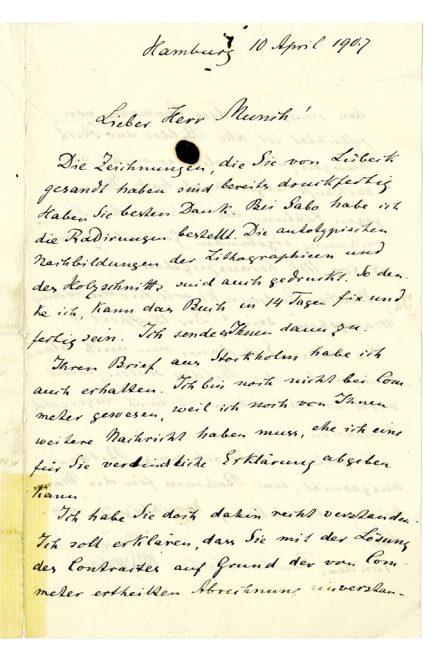 Hamburg 10 April 1907
Lieber Herr Munch!
Die Zeichnungen, die Sie von Lübeck
gesandt haben sind bereits druckfertig
Haben Sie besten Dank. Bei Sabo habe ich
die Radirungen bestellt. Die autotypischen
Nachbildungen der Lithographieen und
des Holzschnitts sind auch gedruckt. So den-
ke ich, kann das Buch in 14 Tagen fix und
fertig sein. Ich sende es Ihnen dann zu.
Ihren Brief aus Stockholm habe ich
auch erhalten. Ich bin noch nicht bei Com
meter gewesen, weil ich noch von Ihnen
weitere Nachricht haben muss, ehe ich eine
für Sie verbindliche Erklärung abgeben
kann
Ich habe Sie doch dahin recht verstanden
Ich soll erklären, dass Sie mit der Lösung
des Contractes auf Grund der von Com-
meter ertheilten Abrechnung einverstan-